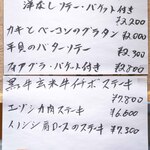 洋なしフラー・バケット付き
¥2,200
カキとベーコンのグラタン
¥2,000
平貝のバターソテー
¥2,300
フォアグラ・バケット付き ¥2,800
黒毛
ステーキ
¥7,800
エゾシカ肉ステーキ
¥6,600
イノシシ肩ロースのステーキ ¥7,300